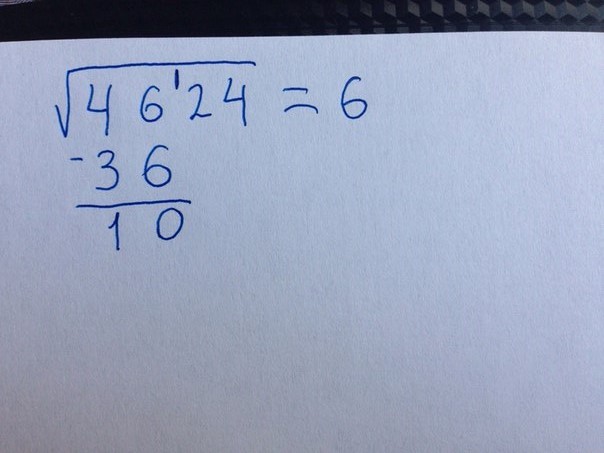 √46'24 = 6
-36
10